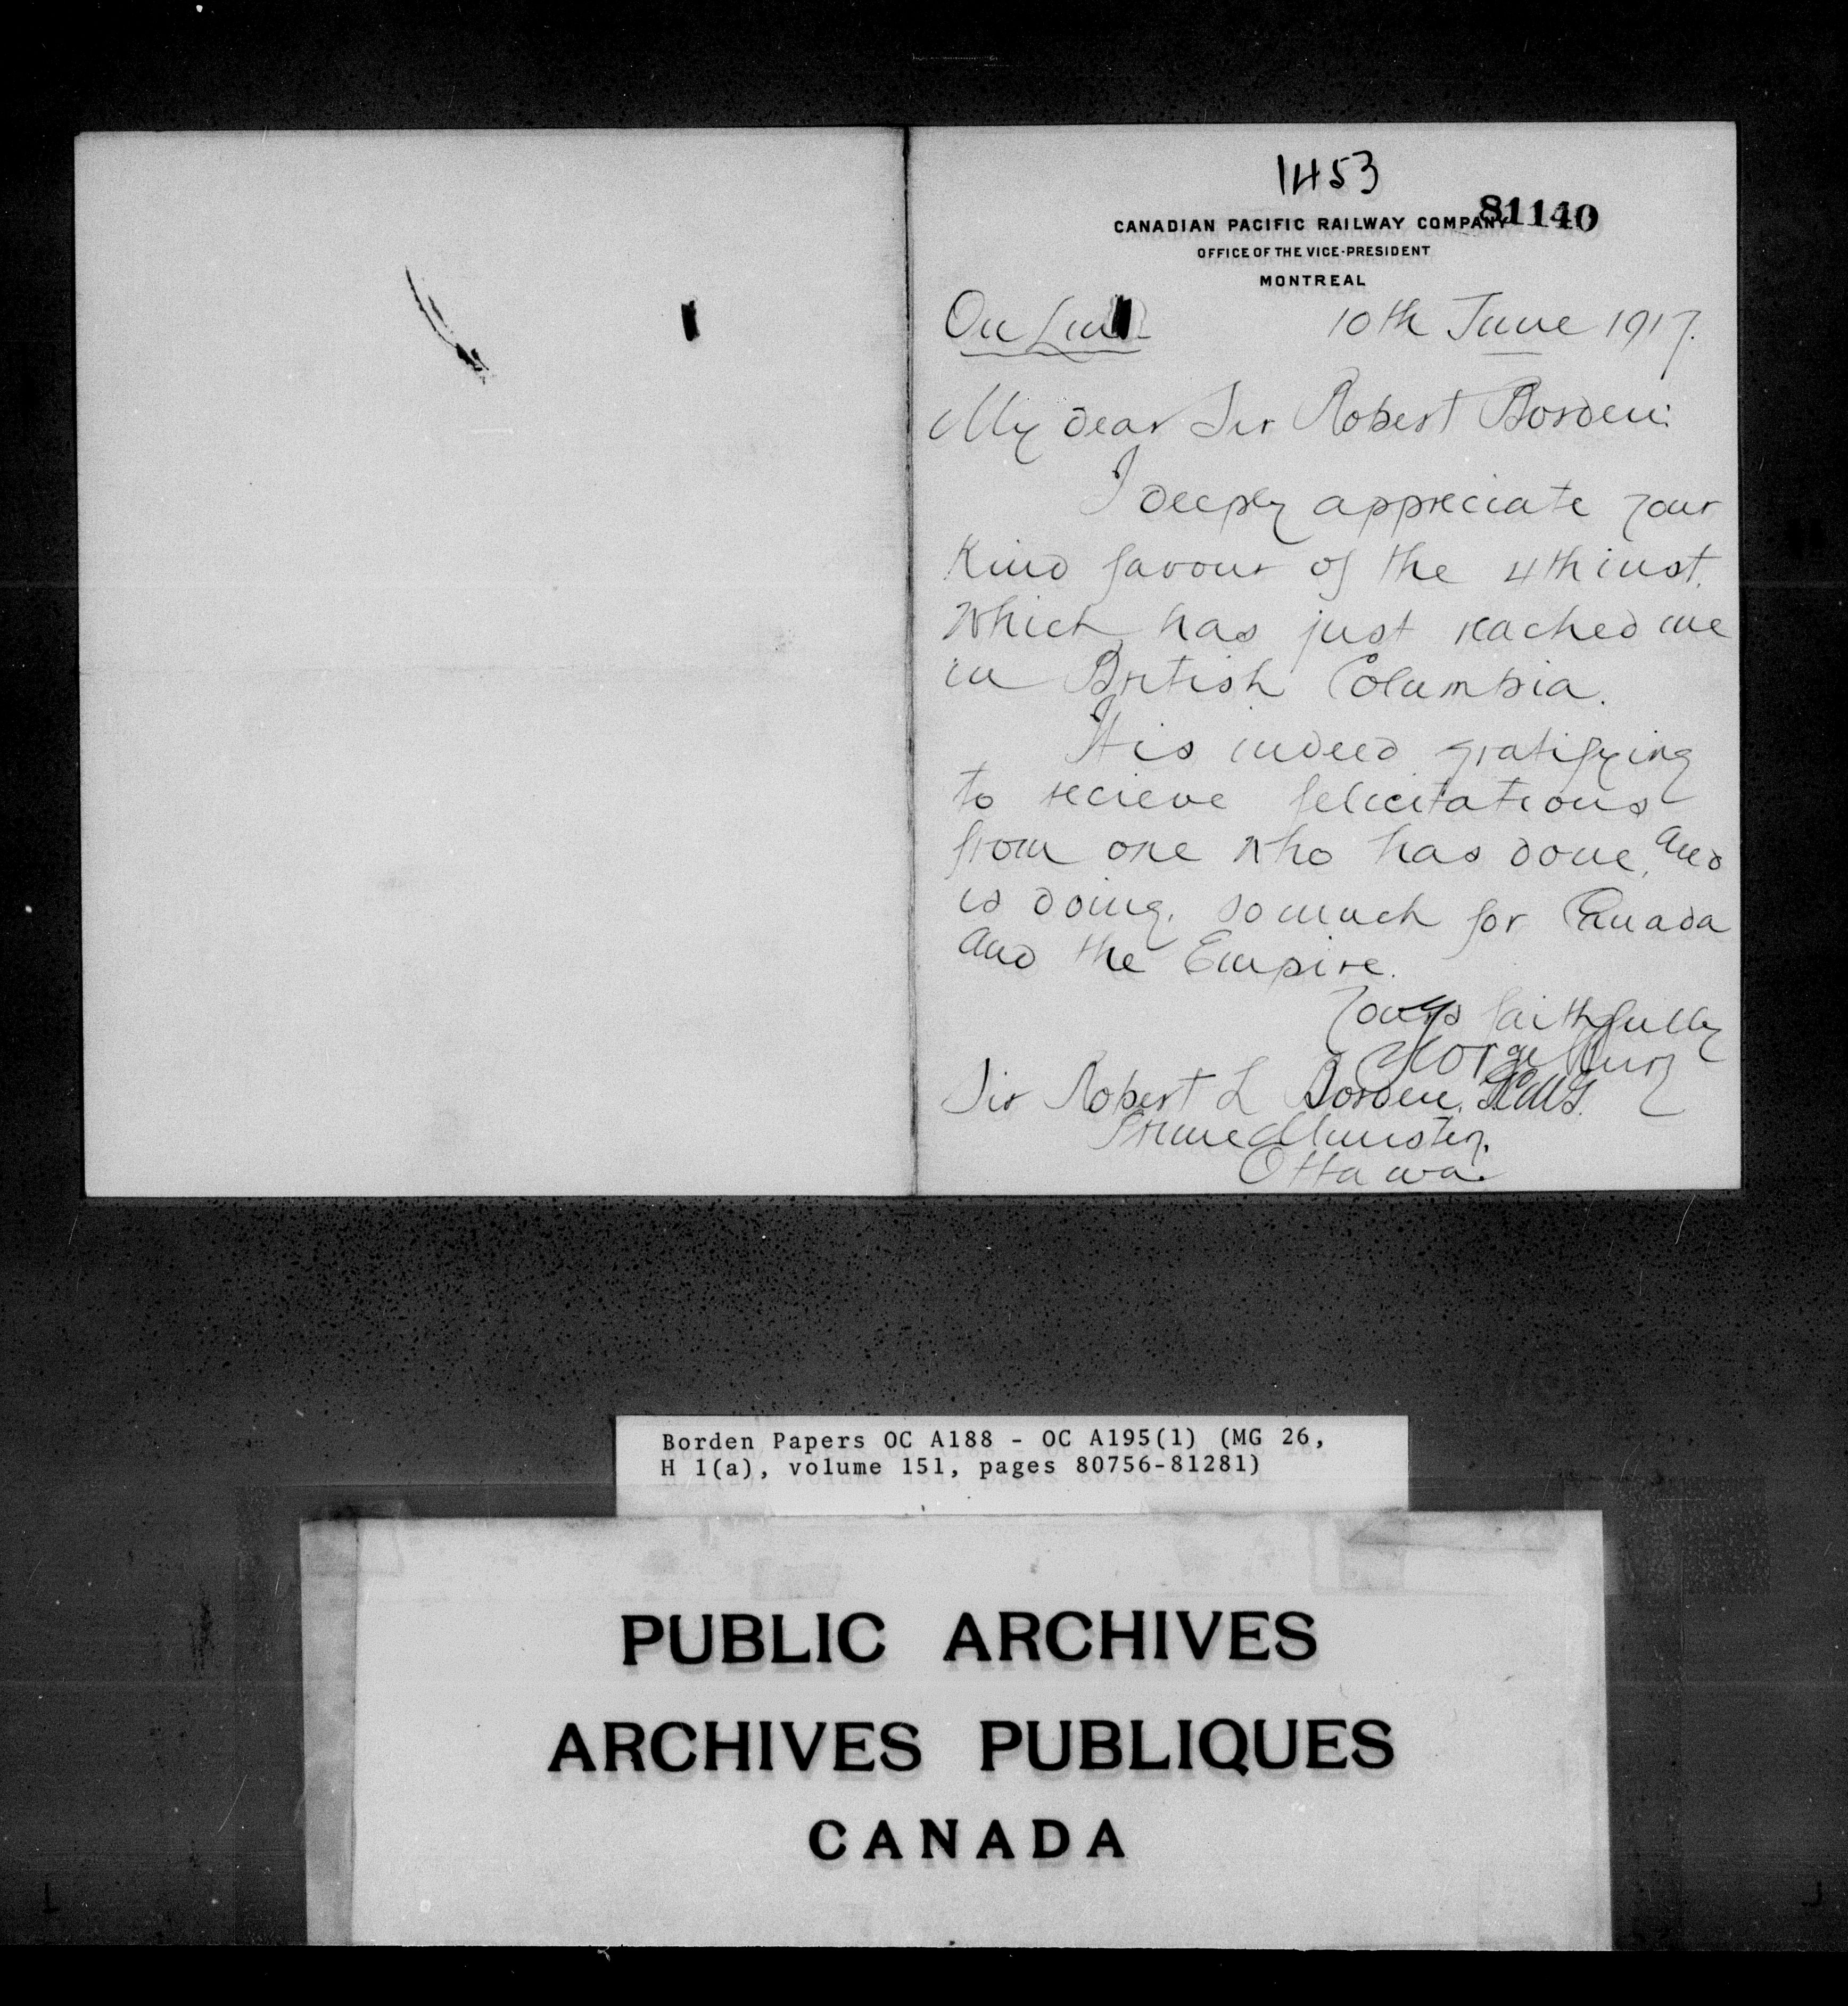 1453
81140
CANADIAN PACIFIC RAILWAY COMPANY
OFFICE OF THE VICE-PRESIDENT
MONTREAL
On Line 10th June 1917.
My dear Sir Robert Borden:
I deeply appreciate your
kind favour of the 4th inst.
which has just reached me
in British Columbia.
It is indeed gratifying
to recieve felicitations
from one who has done, and
is doing, so much for Canada
and the Empire.
Yours faithfully
George Bury
Sir Robert L Borden, KCMG.
Prime Minister,
Ottawa.
Borden Papers OC A188 - OC A195(1) (MG 26,
H 1(a), volume 151, pages 80756-81281)
PUBLIC ARCHIVES
ARCHIVES PUBLIQUES
CANADA